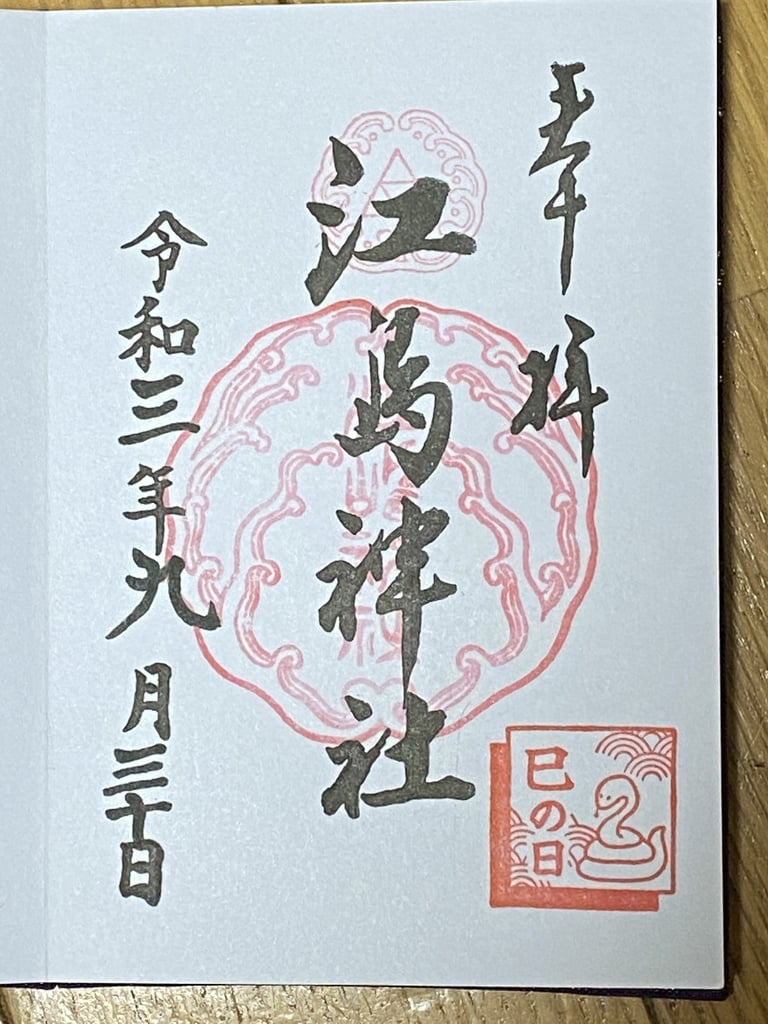 奉拝
江島神社
令和三年九月三十日
巳の日